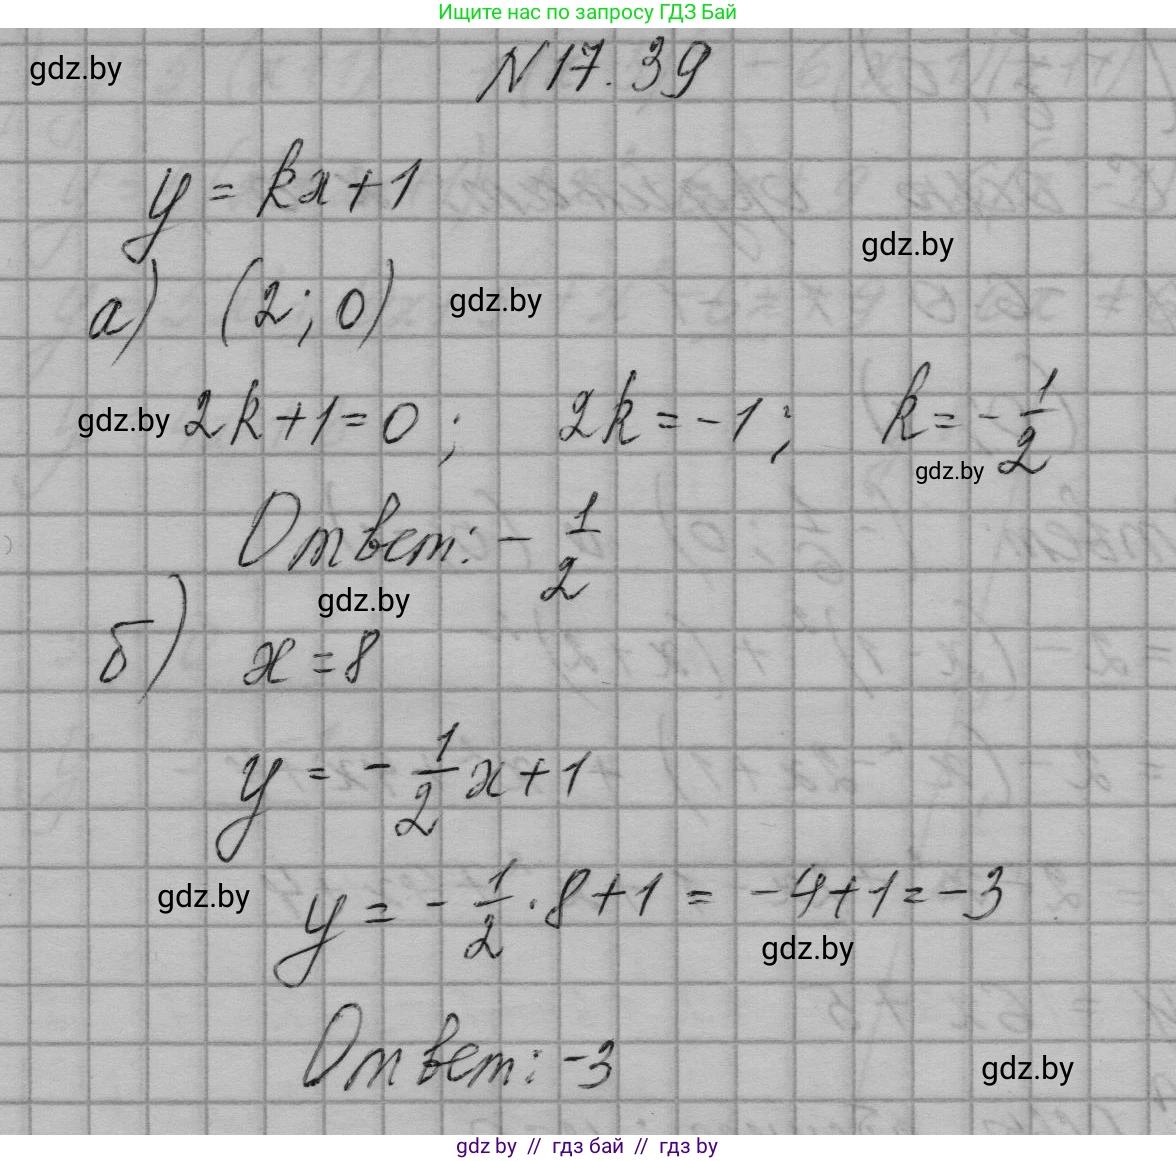 Ищите нас по запросу ГДЗ Бай
gdz.by
N 17.39
y = kx + 1
gdz.by
а) (2; 0)
gdz.by
gdz.by
2k + 1 = 0; 2k = -1; k = - 1/2
gdz.by
Ответ: - 1/2
gdz.by
б) x = 8
y = - 1/2 x + 1
gdz.by
y = - 1/2 · 8 + 1 = -4 + 1 = -3
gdz.by
Ответ: -3
gdz.by
gdz.by // гдз бай // гдз by